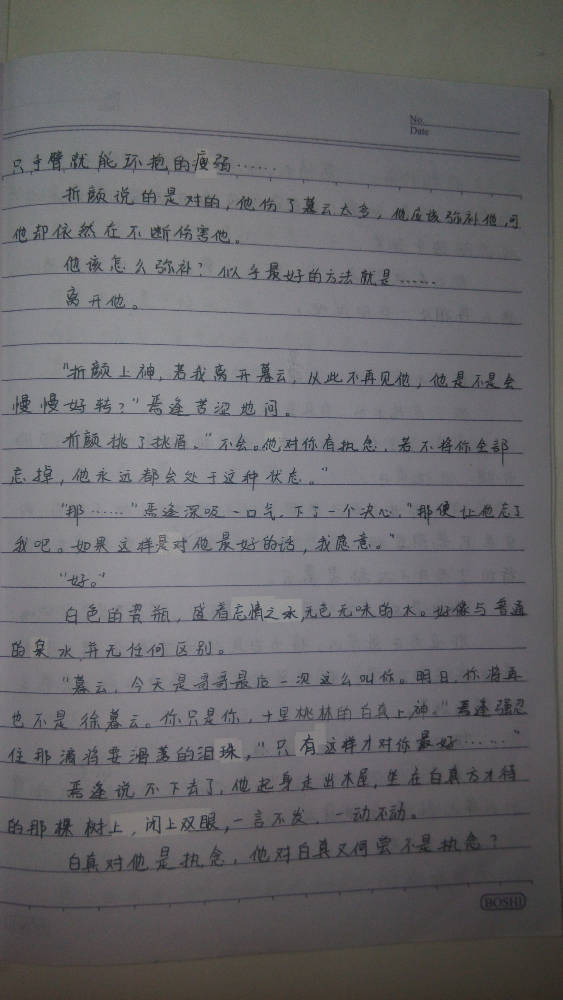 No.
Date
只手臂就能环抱的瘦弱……
折颜说的是对的，他伤了暮云太多，他应该弥补他，可
他却依然在不断伤害他。
他该怎么弥补？似乎最好的方法就是……
离开他。
“折颜上神，若我离开暮云，从此不再见他，他是不是会
慢慢好转？”焉逢苦涩地问。
折颜挑了挑眉，“不会。他对你有执念，若不将你全部
忘掉，他永远都会处于这种状态。”
“那……”焉逢深吸一口气，下了一个决心，“那便让他忘了
我吧。如果这样是对他最好的话，我愿意。”
“好。”
白色的瓷瓶，盛着忘情之水，无色无味的水。好像与普通
的泉水，并无任何区别。
“暮云，今天是哥哥最后一次这么叫你。明日，你将再
也不是徐暮云。你只是你，十里桃林的白真上神。”焉逢强忍
住那滴将要滑落的泪珠，“只有这样才对你最好……”
焉逢说不下去了，他起身走出木屋，坐在白真方才待
的那棵树上，闭上双眼，一言不发，一动不动。
白真对他是执念，他对白真又何尝不是执念？
BOSHI